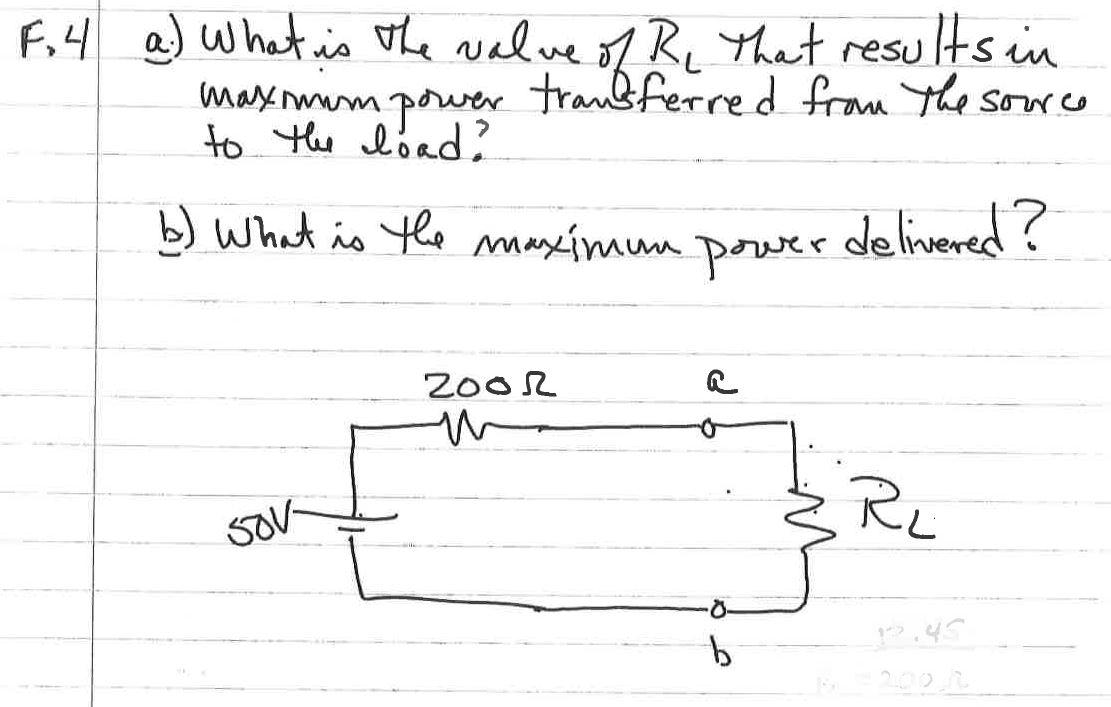 F.4 a.) What is the value of RL that results in
maximum power transferred from the source
to the load?
b) What is the maximum power delivered?
200Ω a
50V
RL
b
.45
200Ω